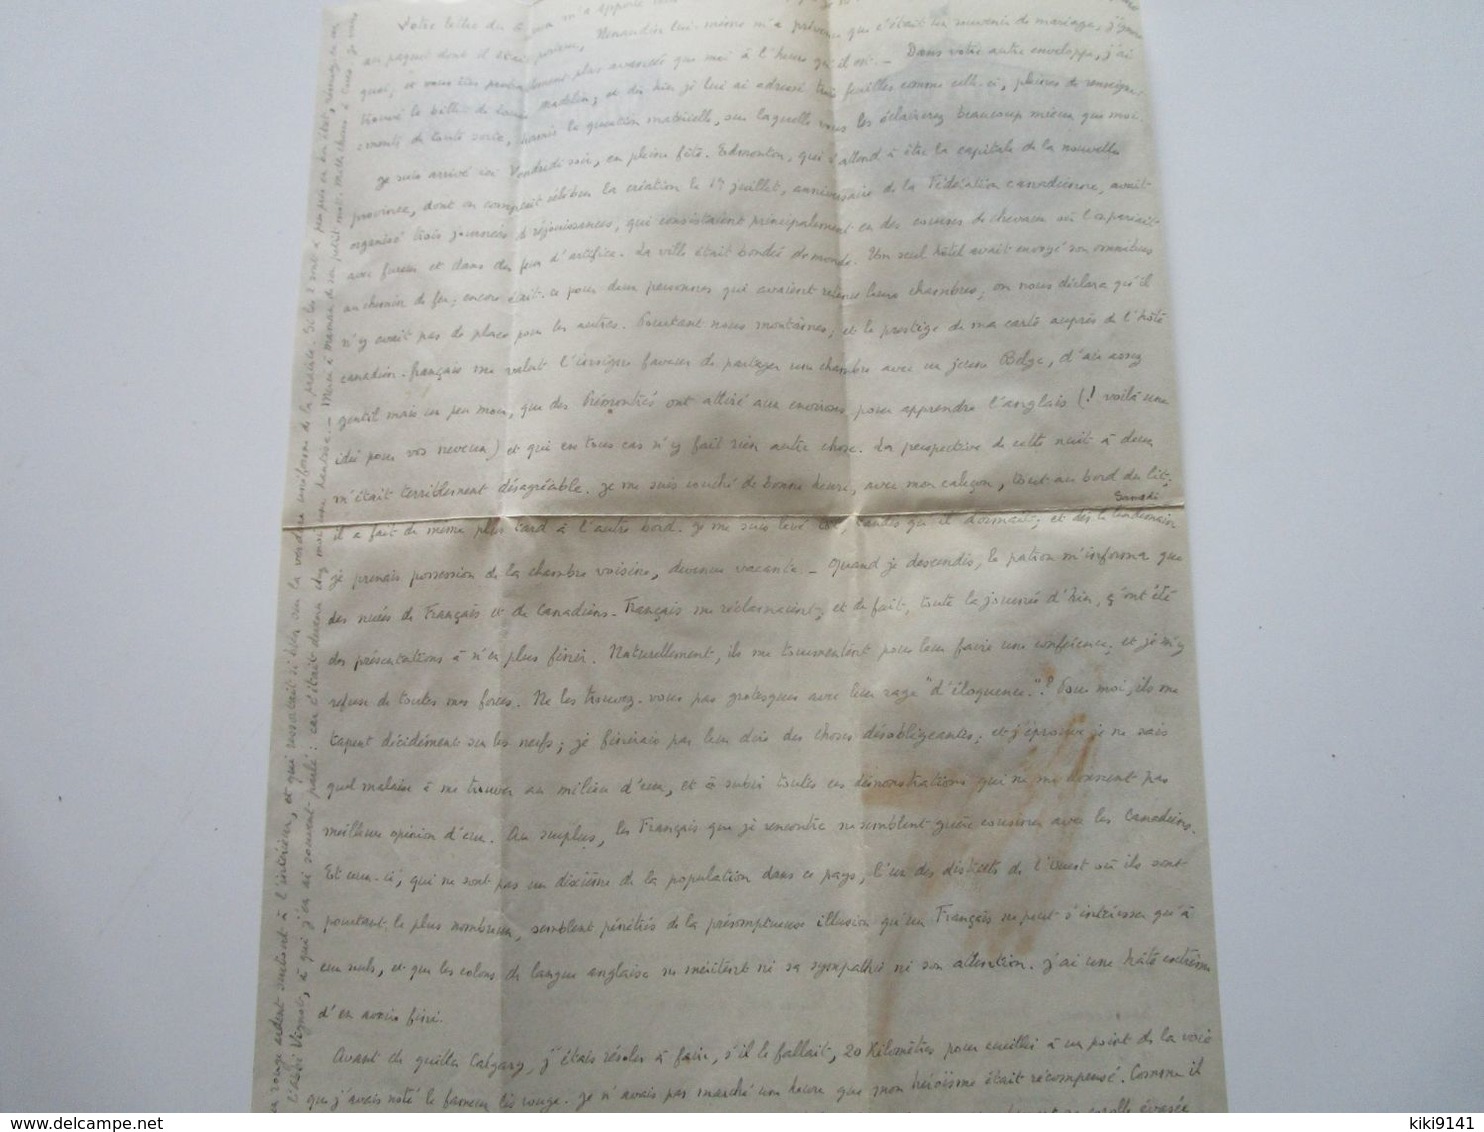 Votre lettre du m'a apporté
au paquet dont il était Renaudin lui-même m'a prévenu que c'était un souvenir de mariage, j'ignore
quoi, et vous êtes plus avancés que moi à l'heure qu'il est. – Dans votre autre enveloppe, j'ai
trouvé le billet de et dès hier je lui ai adressé trois feuilles comme celle-ci, pleines de renseigne-
ments de toute sorte, la question matérielle, sur laquelle vous les éclairerez beaucoup mieux que moi.
Je suis arrivé ici Vendredi soir, en pleine fête. Edmonton, qui s'attend à être la capitale de la nouvelle
province, dont on comptait célébrer la création le 1er juillet, anniversaire de la Fédération canadienne, avait
organisé trois journées de réjouissances, qui consistaient principalement en des courses de chevaux où l'on pariait
avec fureur et dans des feux d'artifice. La ville était bondée de monde. Un seul hôtel avait envoyé son omnibus
au chemin de fer; encore était-ce pour deux personnes qui avaient retenu leurs chambres; on nous déclara qu'il
n'y avait pas de place pour les autres. Pourtant nous montâmes; et le prestige de ma carte auprès de l'hôte
canadien-français me valut l'insigne faveur de partager une chambre avec un jeune Belge, d'air assez
gentil mais un peu mou, que des Prémontrés ont attiré aux environs pour apprendre l'anglais (! voilà une
idée pour vos neveux) et qui en tous cas n'y fait rien autre chose. La perspective de cette nuit à deux
m'était terriblement désagréable. Je me suis couché de bonne heure, avec mon caleçon, tout au bord du lit;
Samedi
il a fait de même plus tard à l'autre bord. Je me suis levé tôt, tandis qu'il dormait; et dès le lendemain
je prenais possession de la chambre voisine, devenue vacante. – Quand je descendis, le patron m'informa que
des nuées de Français et de Canadiens-Français me réclamaient; et de fait, toute la journée d'hier, ç'ont été
des présentations à n'en plus finir. Naturellement, ils me tourmentent pour leur faire une conférence, et je m'y
refuse de toutes mes forces. Ne les trouvez-vous pas grotesques avec leur rage "d'éloquence"? Pour moi, ils me
tapent décidément sur les nerfs; je finirais par leur dire des choses désobligeantes; et j'éprouve je ne sais
quel malaise à me trouver au milieu d'eux, et à subir toutes ces démonstrations qui ne me donnent pas
meilleure opinion d'eux. Au surplus, les Français que je rencontre ne semblent guère cousiner avec les Canadiens.
Et ceux-ci, qui ne sont pas un dixième de la population dans ce pays, l'un des districts de l'Ouest où ils sont
pourtant le plus nombreux, semblent pénétrés de la présomptueuse illusion qu'un Français ne peut s'intéresser qu'à
eux seuls, et que les colons de langue anglaise ne méritent ni sa sympathie ni son attention. J'ai une hâte extrême
d'en avoir fini.
Avant de quitter Calgary, j'étais résolu à faire, s'il le fallait, 20 kilomètres pour cueillir à un point de la voie
que j'avais noté le fameux lis rouge. Je n'avais pas marché une heure que mon héroïsme était récompensé. Comme il
corolle évasée
rouge ardent à l'intérieur, et qui ressortait si bien sur la verdure uniforme de la prairie.
l'abbé Vignot, à qui j'en ai souvent parlé: car c'était devenu chez moi une hantise. – Merci à maman de son petit mot.
kiki9141